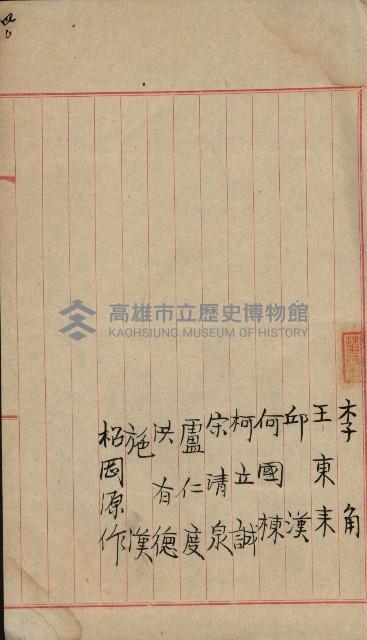 李角
王東来
邱漢
何國棟
柯立誠
宋清泉
盧仁度
洪有德
施漢
松岡源作
高雄市立歷史博物館
KAOHSIUNG MUSEUM OF HISTORY